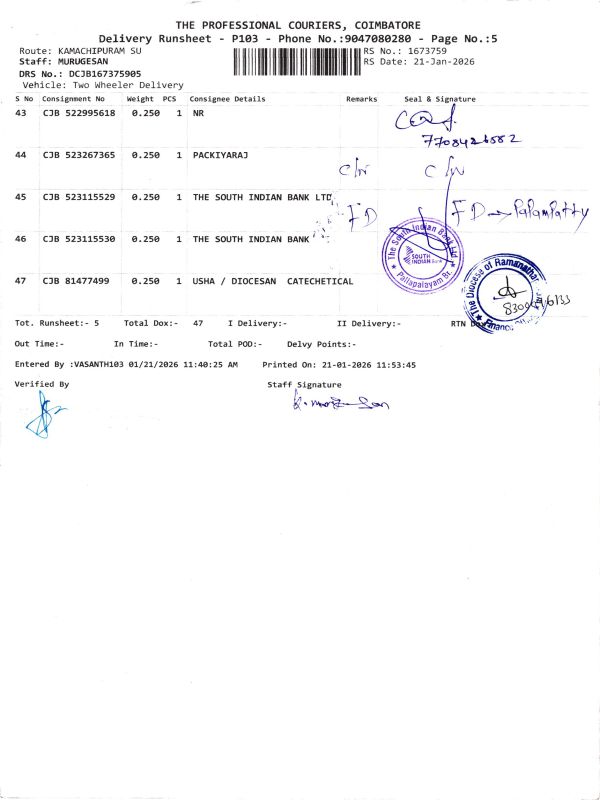 THE PROFESSIONAL COURIERS, COIMBATORE
Delivery Runsheet - P103 - Phone No.:9047080280 - Page No.:5
Route: KAMACHIPURAM SU RS No.: 1673759
Staff: MURUGESAN RS Date: 21-Jan-2026
DRS No.: DCJB167375905
Vehicle: Two Wheeler Delivery
S No Consignment No Weight PCS Consignee Details Remarks Seal & Signature
43 CJB 522995618 0.250 1 NR
44 CJB 523267365 0.250 1 PACKIYARAJ C/N C/N
45 CJB 523115529 0.250 1 THE SOUTH INDIAN BANK LTD FD FD → Palampatty
46 CJB 523115530 0.250 1 THE SOUTH INDIAN BANK
The South Indian Bank Ltd
SOUTH INDIAN Bank
Pallapalayam Br.
47 CJB 81477499 0.250 1 USHA / DIOCESAN CATECHETICAL
The Diocese of Ramanathar
Financ
Tot. Runsheet:- 5 Total Dox:- 47 I Delivery:- II Delivery:- RTN
Out Time:- In Time:- Total POD:- Delvy Points:-
Entered By :VASANTH103 01/21/2026 11:40:25 AM Printed On: 21-01-2026 11:53:45
Verified By Staff Signature